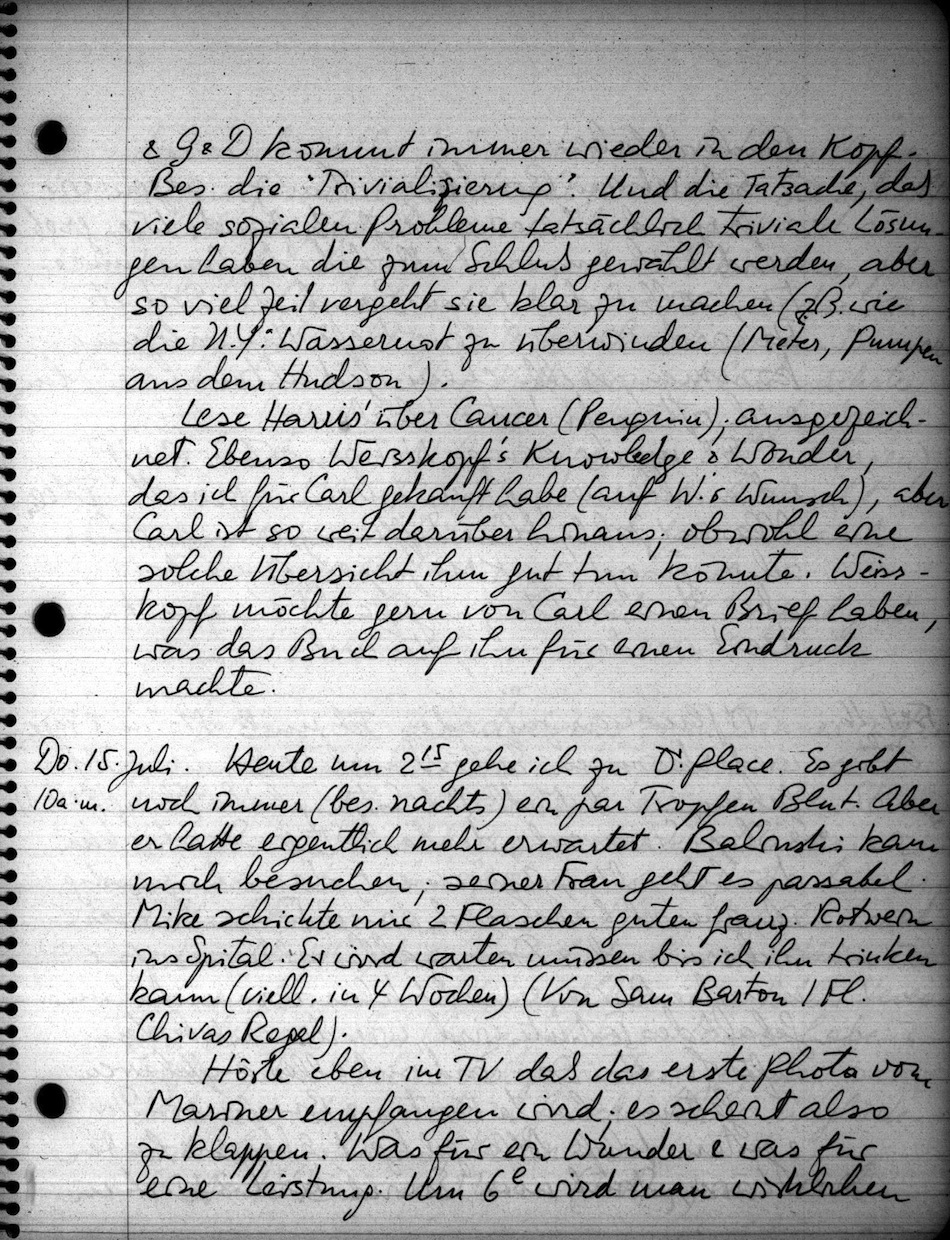 & G & D kommt immer wieder in den Kopf.
Bes. die "Trivialisierung". Und die Tatsache, daß
viele sozialen Probleme tatsächlich triviale Lösun-
gen haben die zum Schluß gewählt werden, aber
so viel Zeit vergeht sie klar zu machen (zB. wie
die N.Y. Wassernot zu überwinden (Meter, Pumpen
aus dem Hudson).
Lese Harris' über Cancer (Penguin); ausgezeich-
net. Ebenso Weisskopf's Knowledge & Wonder,
das ich für Carl gekauft habe (auf W.'s Wunsch), aber
Carl ist so weit darüber hinaus; obwohl eine
solche Übersicht ihm gut tun könnte. Weiss-
kopf möchte gern von Carl einen Brief haben,
was das Buch auf ihn für einen Eindruck
machte.
Do. 15. Juli. Heute um 2 15 gehe ich zu Place. Es gibt
10 a.m. noch immer (bes. nachts) ein par Tropfen Blut. Aber
er hatte eigentlich mehr erwartet. Balinski kam
mich besuchen; seiner Frau geht es passabel.
Mike schickte mir 2 Flaschen guten franz. Rotwein
ins Spital. Er wird warten müssen bis ich ihn trinken
kann (viell. in 4 Wochen) (Von Sam Barton 1 Fl.
Chivas Regal).
Hörte eben im TV daß das erste Photo vom
Mariner empfangen wird; es scheint also
zu klappen. Was für ein Wunder & was für
eine Leistung. Um 6 e wird man wirklichen